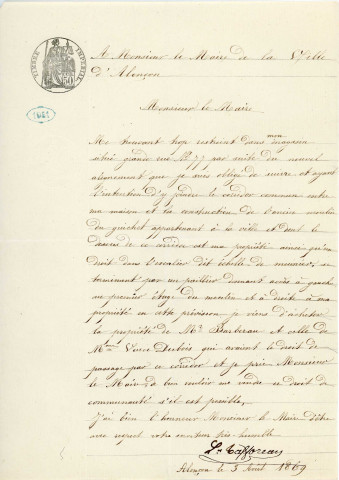 TIMBRE IMPERIAL
50
A Monsieur le Maire de la Ville
d'Alençon
Monsieur le Maire
Me trouvant trop restreint dans mon magasin
situé grande rue N° 77 par suite du nouvel
alignement que je suis obligé de suivre et ayant
l'intention d'y joindre le couloir commun entre
ma maison et la construction de l'ancien moulin
du guichet appartenant à la ville et dont le
dessus de ce couloir est ma propriété ainsi qu'un
droit dans l'escalier dit échelle de meunier, se
terminant par un pallier donnant accès à gauche
au premier étage du moulin et à droite à ma
propriété en cette prévision je viens d'acheter
la propriété de Mr Barbreau et celle de
Mme Veuve Dubois qui avaient le droit de
passage par ce couloir et je prie Monsieur
le Maire de bien vouloir me vendre ce droit de
communauté s'il est possible,
J'ai bien l'honneur Monsieur le Maire d'être
avec respect votre serviteur très humble
Alençon le 5 Août 1869